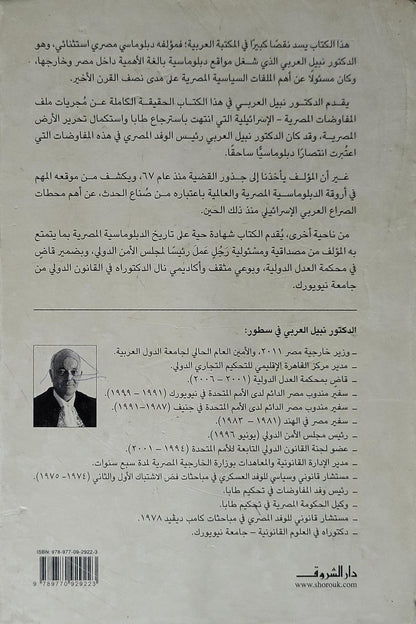 هذا الكتاب يسد نقصًا كبيرًا في المكتبة العربية؛ فمؤلفه دبلوماسي مصري استثنائي، وهو
الدكتور نبيل العربي الذي شغل مواقع دبلوماسية بالغة الأهمية داخل مصر وخارجها،
وكان مسئولًا عن أهم الملفات السياسية المصرية على مدى نصف القرن الأخير.
يقدم الدكتور نبيل العربي في هذا الكتاب الحقيقة الكاملة عن مُجريات ملف
المفاوضات المصرية – الإسرائيلية التي انتهت باسترجاع طابا واستكمال تحرير الأرض
المصرية، وقد كان الدكتور نبيل العربي رئيس الوفد المصري في هذه المفاوضات التي
اعتُبرت انتصارًا دبلوماسيًّا ساحقًا.
غير أن المؤلف يأخذنا إلى جذور القضية منذ عام ٦٧، ويكشف من موقعه المهم
في أروقة الدبلوماسية المصرية والعالمية باعتباره من صُناع الحدث، عن أهم محطات
الصراع العربي الإسرائيلي منذ ذلك الحين.
من ناحية أخرى، يُقدم الكتاب شهادة حية على تاريخ الدبلوماسية المصرية بما يتمتع
به المؤلف من مصداقية ومسئولية رَجُلٍ عَمل رئيسًا لمجلس الأمن الدولي، وبضمير قاضٍ
في محكمة العدل الدولية، وبوعي مثقف وأكاديمي نال الدكتوراه في القانون الدولي من
جامعة نيويورك.
الدكتور نبيل العربي في سطور:
– وزير خارجية مصر ٢٠١١، والأمين العام الحالي لجامعة الدول العربية.
– مدير مركز القاهرة الإقليمي للتحكيم التجاري الدولي.
– قاض بمحكمة العدل الدولية (٢٠٠١ – ٢٠٠٦).
– سفير مندوب مصر الدائم لدى الأمم المتحدة في نيويورك (١٩٩١ – ١٩٩٩).
– سفير مندوب مصر الدائم لدى الأمم المتحدة في جنيف (١٩٨٧–١٩٩١).
– سفير مصر في الهند (١٩٨١ – ١٩٨٣).
– رئيس مجلس الأمن الدولي (يونيو ١٩٩٦).
– عضو لجنة القانون الدولي التابعة للأمم المتحدة (١٩٩٤ – ٢٠٠١).
– مدير الإدارة القانونية والمعاهدات بوزارة الخارجية المصرية لمدة سبع سنوات.
– مستشار قانوني وسياسي للوفد العسكري في مباحثات فض الاشتباك الأول والثاني (١٩٧٤– ١٩٧٥).
– رئيس وفد المفاوضات في تحكيم طابا.
– وكيل الحكومة المصرية في تحكيم طابا.
– مستشار قانوني للوفد المصري في مباحثات كامب ديفيد ١٩٧٨.
– دكتوراه في العلوم القانونية – جامعة نيويورك.
ISBN: 978-977-09-2922-3
9 789770 929223
دار الشروق
www.shorouk.com